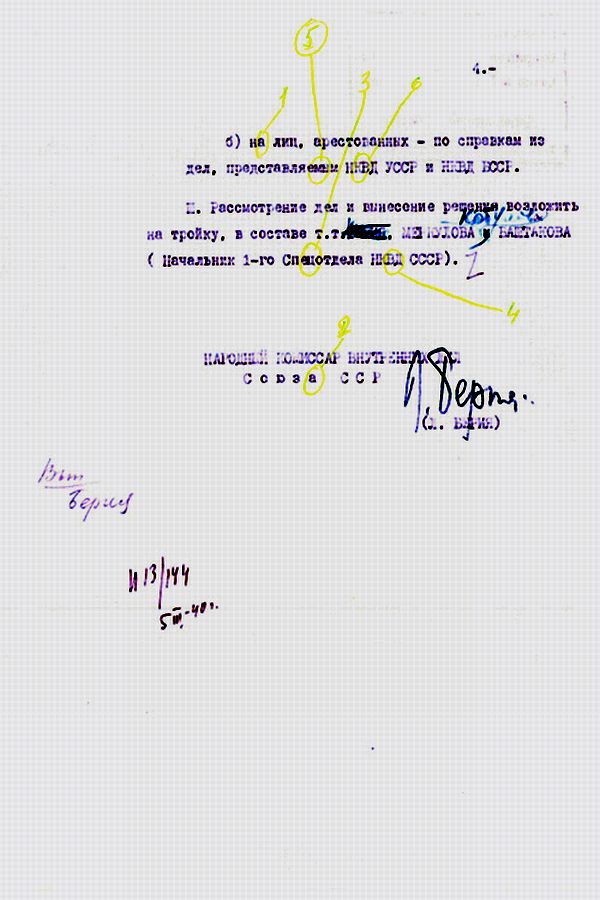 5
3
6
1
4.-
б) на лиц, арестованных - по справкам из
дел, представляемым НКВД УССР и НКВД БССР.
Ш. Рассмотрение дел и вынесение решения возложить
Кобулов
на тройку, в составе т.т. МЕРКУЛОВА и БАШТАКОВА
( Начальник 1-го Спецотдела НКВД СССР).
4
2
НАРОДНЫЙ КОМИССАР ВНУТРЕННИХ ДЕЛ
Союза ССР
Л. Берия
(Л. БЕРИЯ)
Берия
П 13/144
5 III-40г.